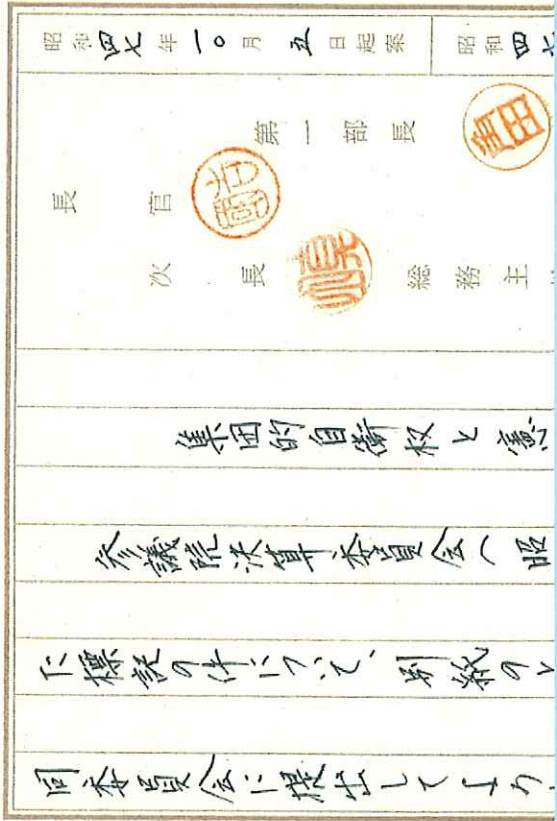 昭和四七年一〇月五日起案
昭和四七
第一部長
長官
次長
総務主
集団的自衛权と憲
参議院決算委員会(昭
に標記の件について、別紙のと
同委員会に提出してよろ